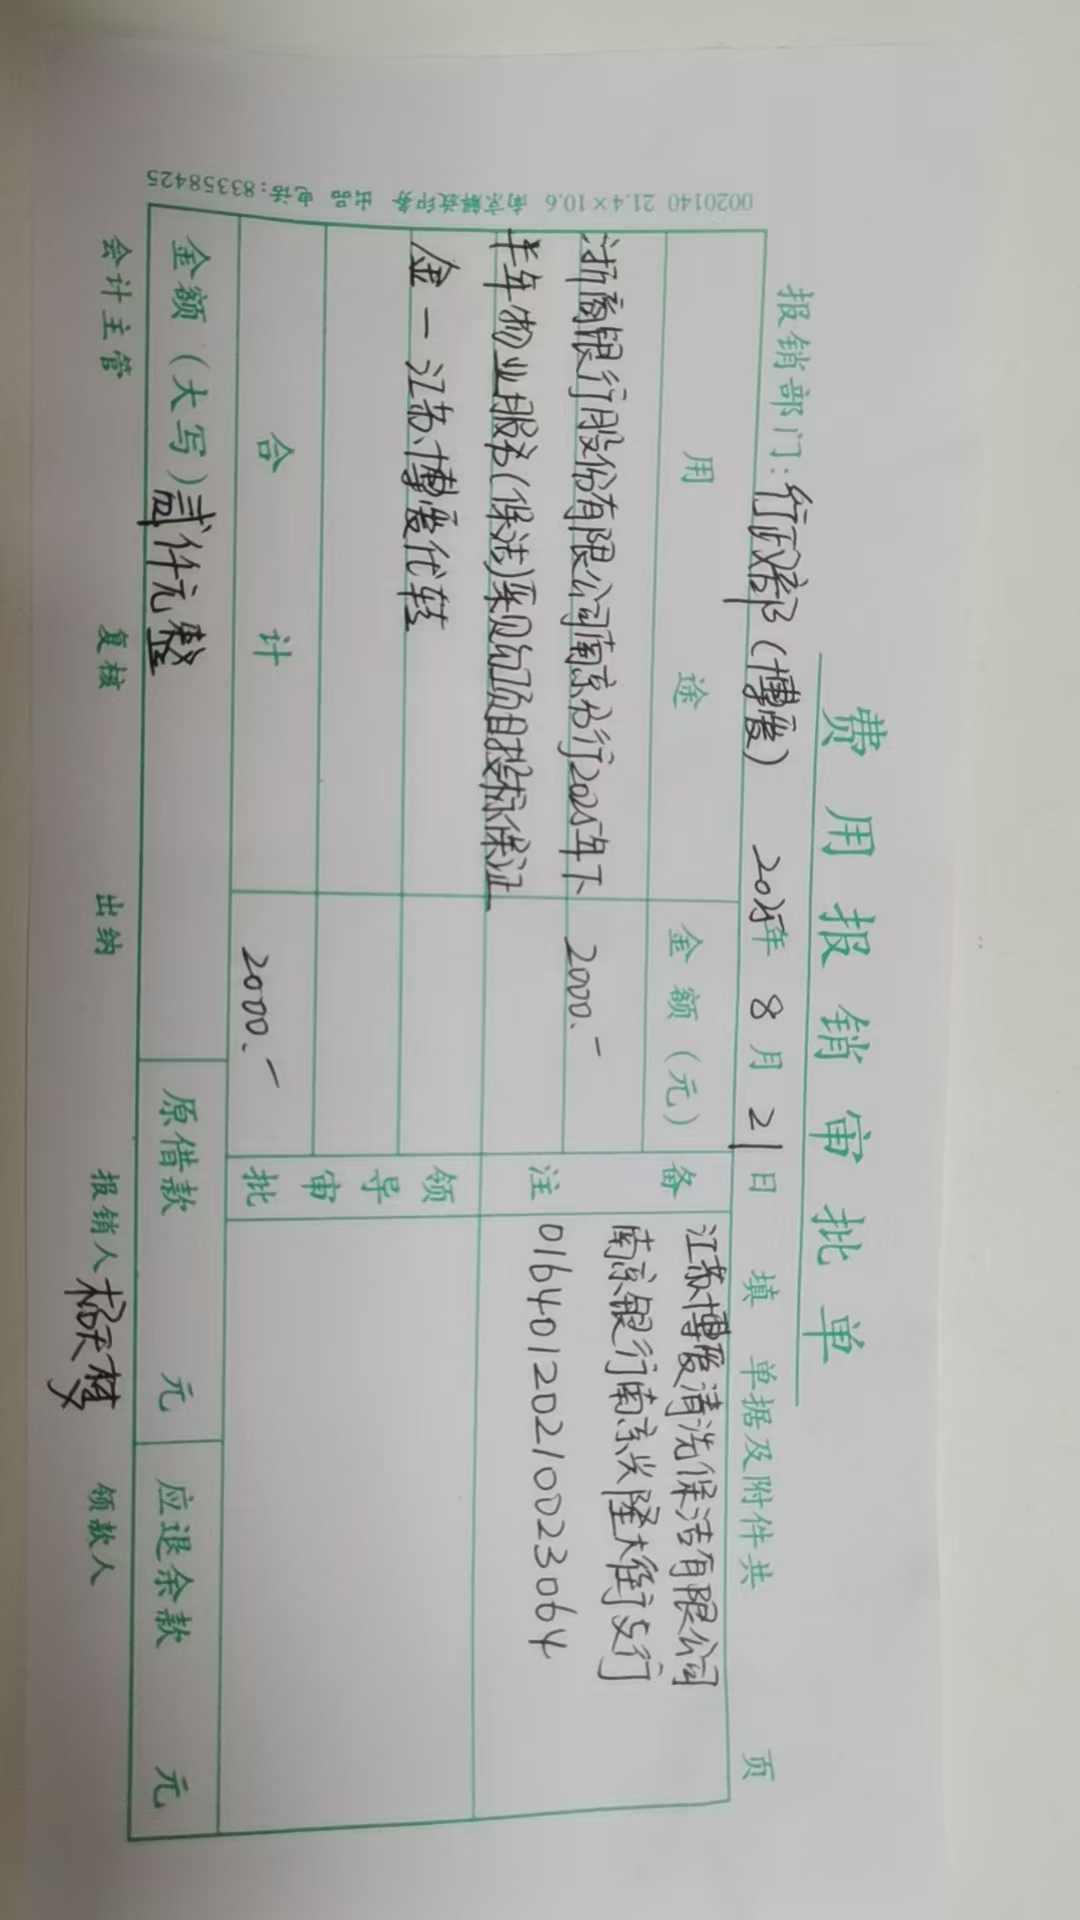 费用报销审批单
报销部门：行政部（博爱） 2025年 8月 21日 填 单据及附件共 页
用途 金额（元） 备注
浙商银行股份有限公司南京分行2025年下 2000.－
半年物业服务(保洁)采购项目投标保证
金－江苏博爱代转
江苏博爱清洗保洁有限公司
南京银行南京兴隆大街支行
01640120210023064
领导审批
合计 2000.－
金额（大写）贰仟元整 原借款 元 应退余款 元
会计主管 复核 出纳 报销人 杨天梦 领款人
0020140 21.4×10.6 南京解放印务 出品 电话:83358425